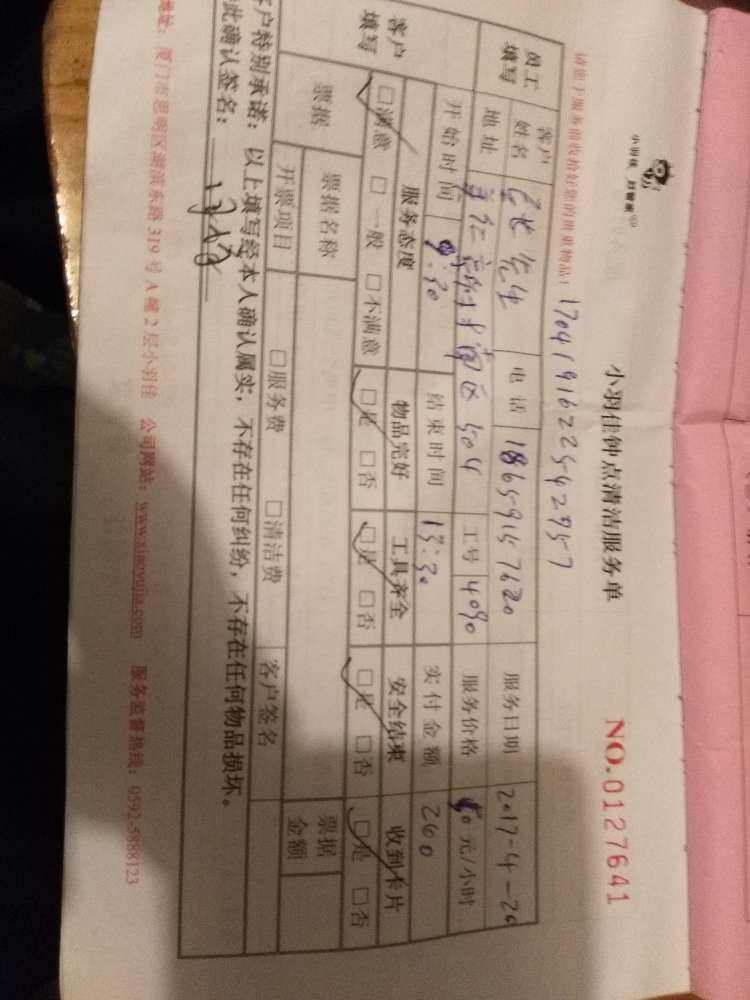 小羽佳 好管家
小羽佳钟点清洁服务单
NO.0127641
请您于服务前收拾好您的贵重物品！
1704191622542957
员工填写 客户姓名 先生 电话 18659157620 服务日期 2017-4-20
地址 南区504 工号 4090 服务价格 元/小时
开始时间 9:30 结束时间 13:30 实付金额 260
客户填写 服务态度 物品完好 工具齐全 安全结束 收到卡片
□满意 □一般 □不满意 □是 □否 □是 □否 □是 □否 □是 □否
票据 票据名称 票据金额
开票项目 □服务费 □清洁费 客户签名
客户特别承诺：以上填写经本人确认属实，不存在任何纠纷，不存在任何物品损坏。
此确认签名：
地址：厦门市思明区湖滨东路319号A幢2层小羽佳 公司网站：www.xiaoyujia.com 服务监督热线：0592-5888123